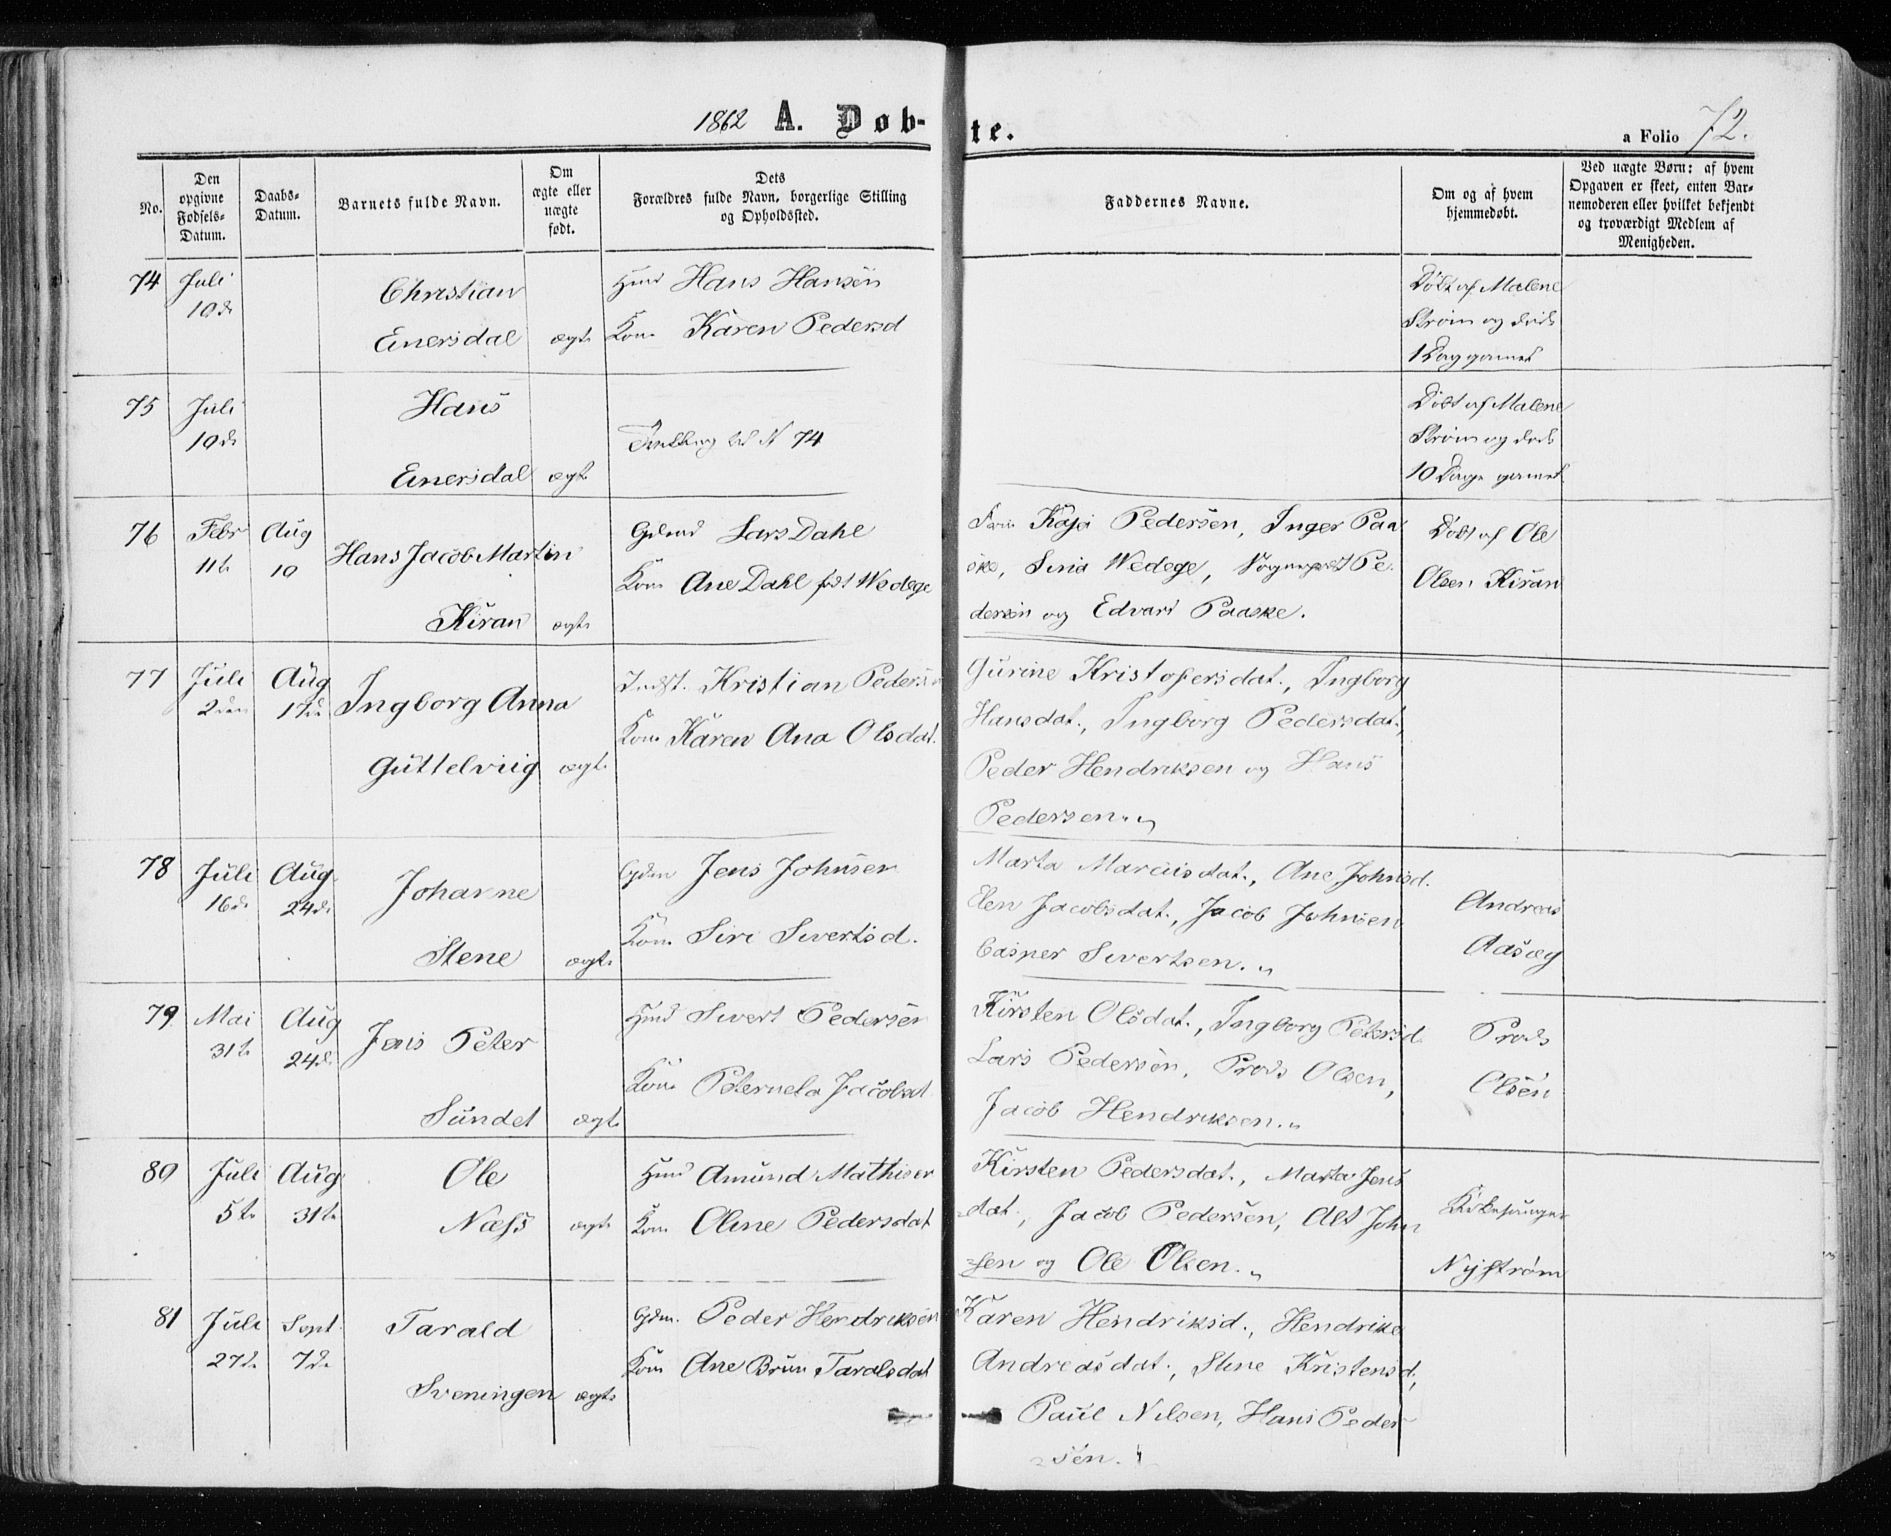 1862 A. Døb-
te.
a Folio 72.
No.
Den
opgivne
Fødsels-
Datum.
Daabs-
Datum.
Barnets fulde Navn.
Om
ægte eller
uægte
født.
Dets
Forældres fulde Navn, borgerlige Stilling
og Opholdssted.
Faddernes Navne.
Om og af hvem
hjemmedøbt.
Ved uægte Børn: af hvem
Opgaven er skeet, enten Bar-
nemoderen eller hvilket bekjendt
og troværdigt Medlem af
Menigheden.
74
Juli
10de
Christian
Enersdal
ægte
Hmd Hans Hansen
Kone Karen Pedersd
Døbt af Malene
Strøm og døde
1 Dag gamel
75
Juli
10de
Hans
Enersdal
ægte
Tvilling til N 74
Døbt af Malene
Strøm og døde
10 Dage gamel
76
Febr
11te
Aug
10
Hans Jacob Martin
Kiran
ægte
Gdmd Lars Dahl
Kone Ane Dahl født Wedege
Kaja Pedersen, Inger Paa
ske, Sina Wedege, Pe
dersen og Edvard Paaske.
Døbt af Ole
Olsen Kiran
77
Juli
2den
Aug
17de
Ingborg Anna
Guttelviig
ægte
Indst. Kristian Pedersen
Kone Karen Ana Olsdat.
Gurine Kristofersdat., Ingborg
Hansdat., Ingborg Pedersdat.,
Peder Hendriksen og Hans
Pedersen.„
78
Juli
16de
Aug
24de
Johanne
Stene
ægte
Gdm Jens Johnsen
Kone Siri Sivertsd.
Marta Marcusdat., Ane Johnsd.
Elen Jacobsdat., Jacob Johnsen
Casper Sivertsen.„
Andreas
Aasæg
79
Mai
31te
Aug
24de
Jens Peter
Sundet
ægte
Hmd Sivert Pedersen
Kone Peternela Jacobsdat
Kirsten Olsdat., Ingborg Petersd.
Lars Pedersen, Prods Olsen,
Jacob Hendriksen.„
Prods
Olsen
80
Juli
5te
Aug
31te
Ole
Næss
ægte
Hmd Amund Mathisen
Kone Oline Pedersdat
Kirsten Pedersdat., Marta Jens
dat., Jacob Pedersen, Alt John
sen og Ole Olsen.„
Kirkesanger
Nystrøm
81
Juli
27de
Sept.
7de
Tarald
Sveningen
ægte
Gdm. Peder Hendriksen
Kone Ane Brun Taralsdat
Karen Hendriksd., Hendrike
Andreasdat., Stine Kristensd.,
Paul Nilsen, Hans Peder
sen.